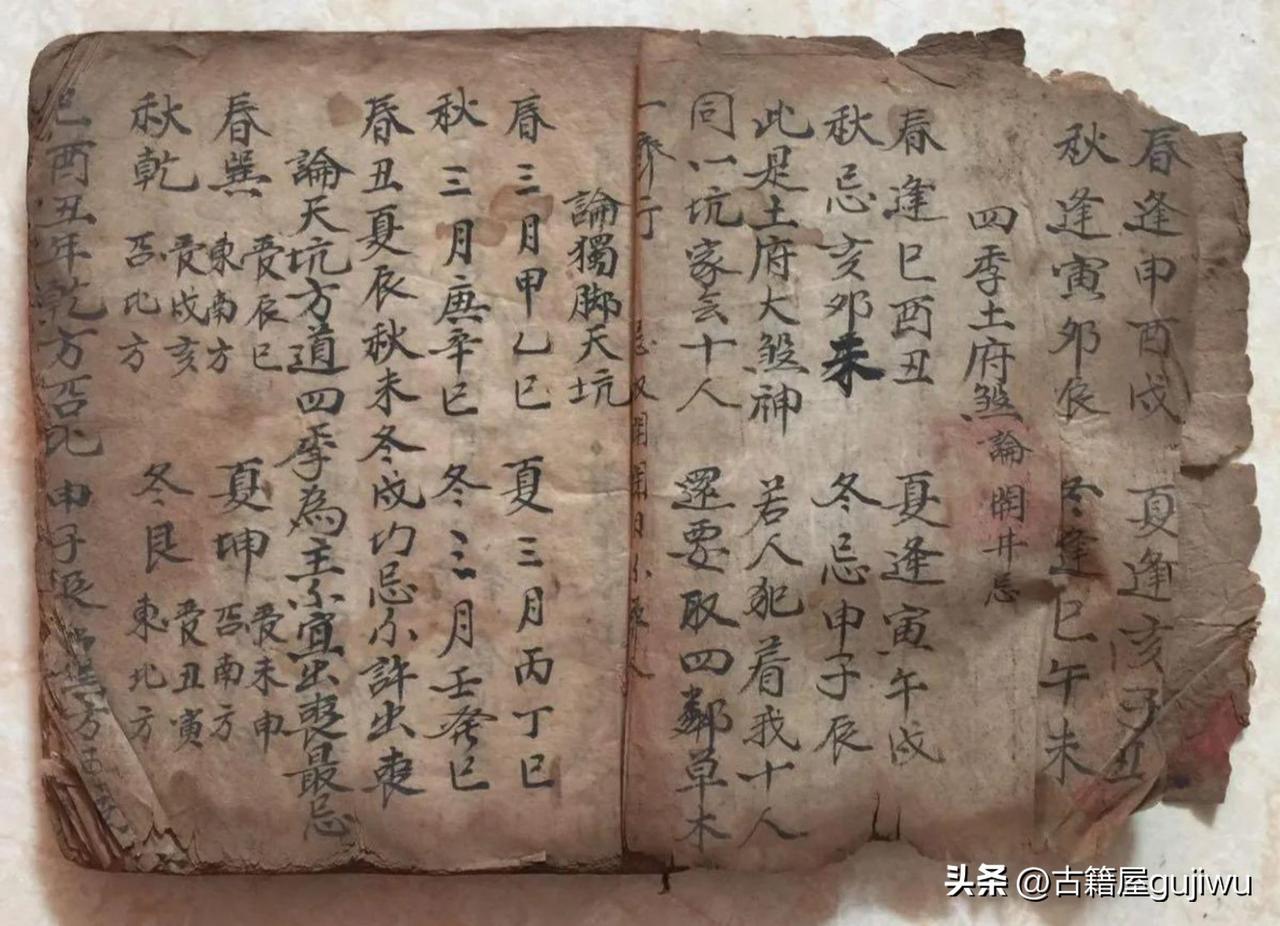 春逢申酉戍 夏逢亥子丑
秋逢寅卯辰 冬逢巳午未
四季土府煞論 開井忌
春逢巳酉丑 夏逢寅午戍
秋忌亥卯未 冬忌申子辰
此是土府大煞神 若人犯着我十人
同一坑家会十人 還要取四鄰草木
論獨脚天坑
春三月甲乙巳 夏三月丙丁巳
秋三月庚辛巳 冬三月壬癸巳
春丑夏辰秋未冬戍切忌不許出喪
論天坑方道四季為主不宜出喪最忌
春巽 忌辰巳東南方 夏坤 忌未申西南方
秋乾 忌戍亥西北方 冬艮 忌丑寅東北方
巳酉丑年乾方西北 申子辰
头条 @古籍屋gujiwu